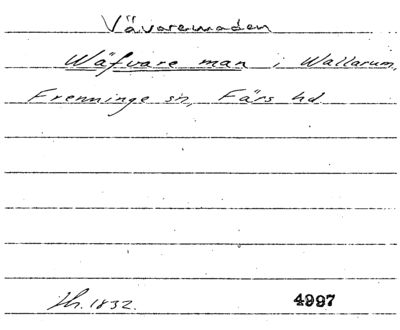 Vävaremaden
Wäfvare man i Wallarum,
Frenninge sn, Färs hd.
Th. 1832. 4997